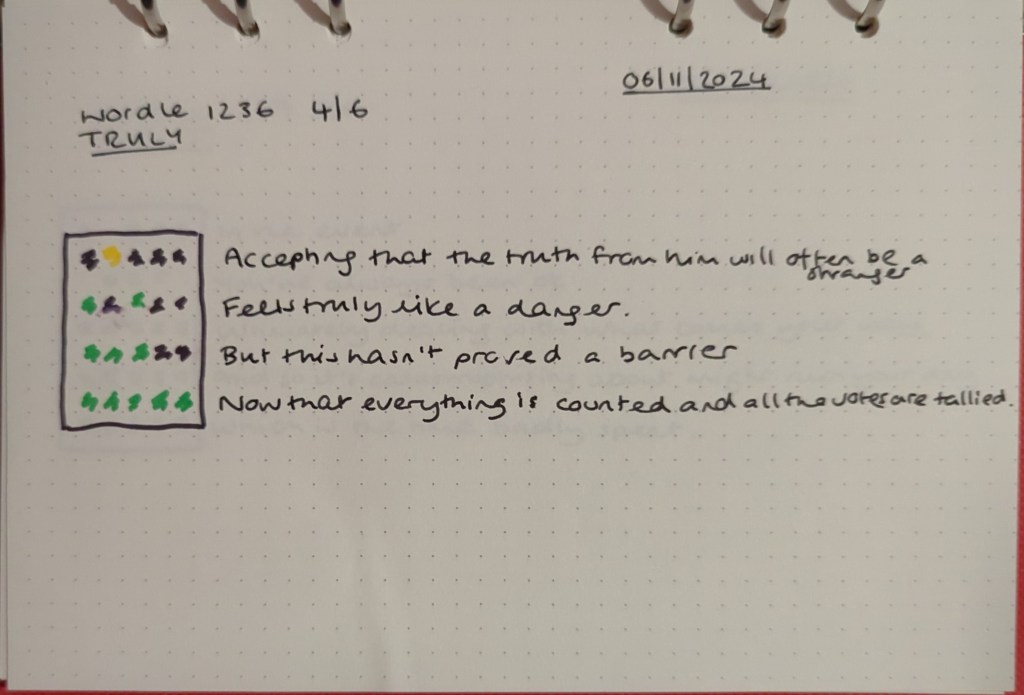 06/11/2024
Wordle 1236 4/6
TRULY
Accepting that the truth from him will often be a
stranger
Feels truly like a danger.
But this hasn't proved a barrier
Now that everything is counted and all the votes are tallied.